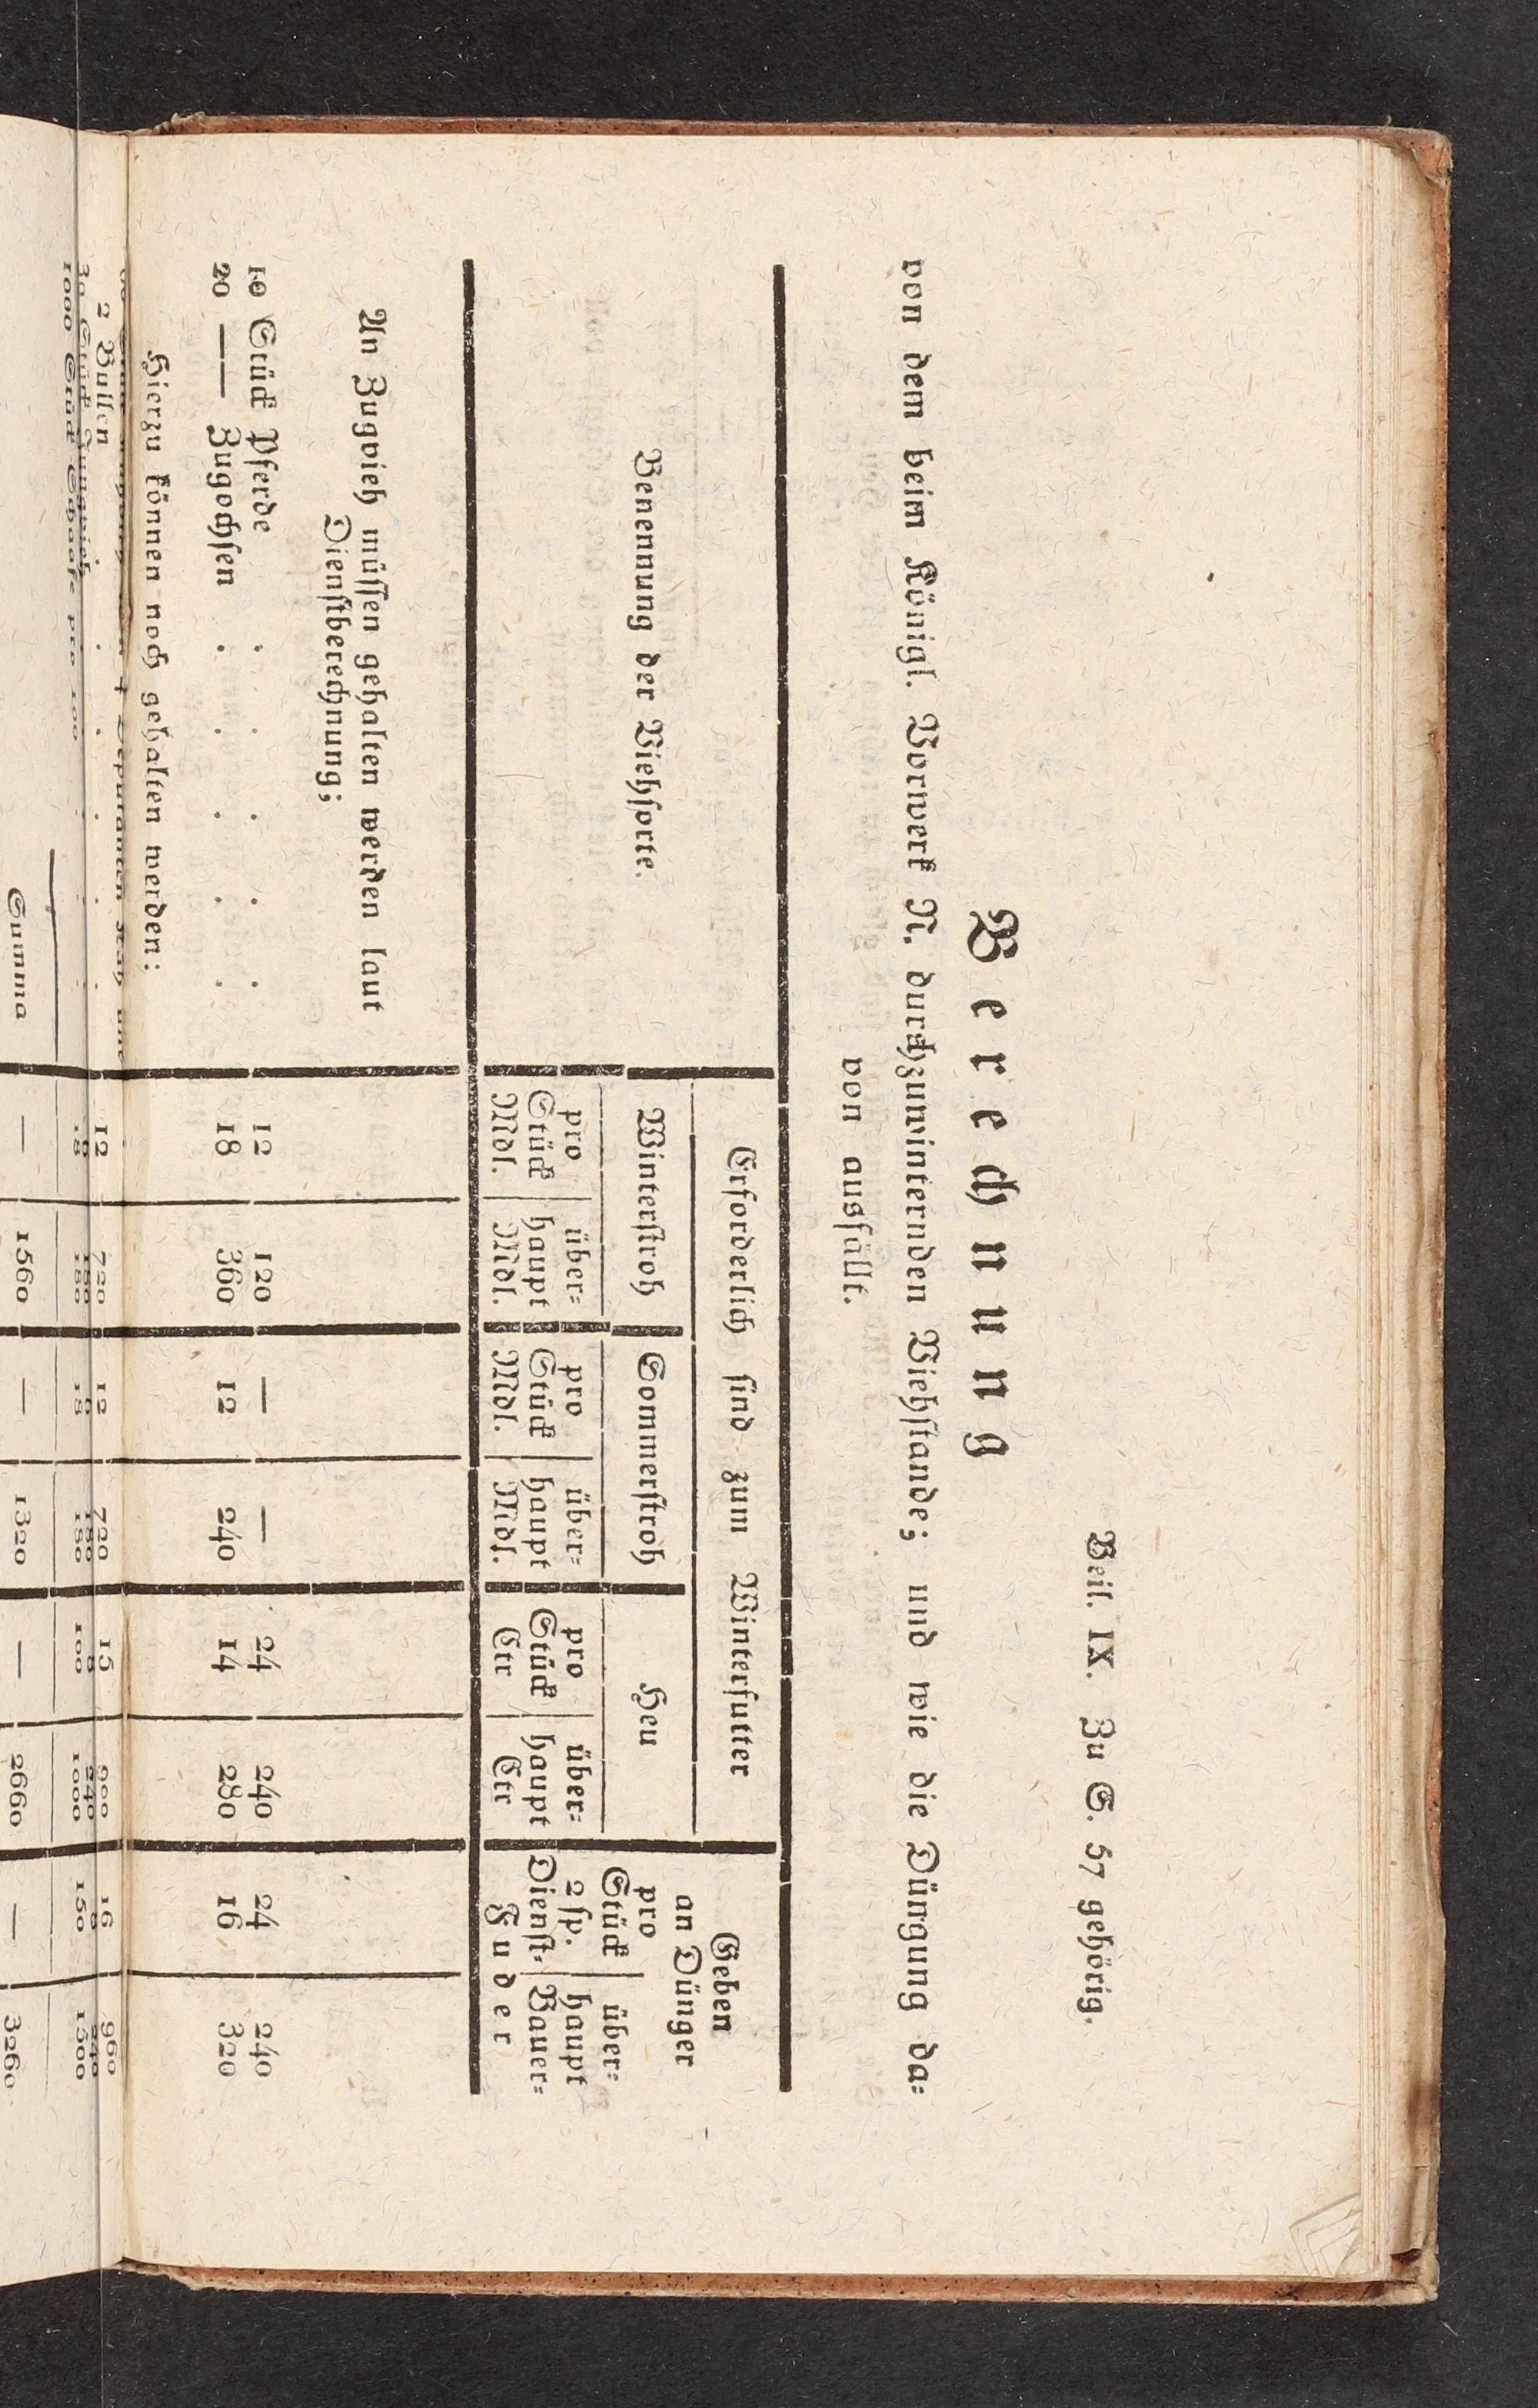 Beil. IX. Zu S. 57 gehörig.
Berechnung
von dem beim Königl. Vorwerk N. durchzuwinternden Viehstande; und wie die Düngung da=
von ausfällt.
Benennung der Viehsorte.
Erforderlich sind zum Winterfutter
Winterstroh
Sommerstroh
Heu
pro Stück Mdl.
über= haupt Mdl.
pro Stück Mdl.
über= haupt Mdl.
pro Stück Ctr
über= haupt Ctr
Geben
an Dünger
pro Stück 2 sp. Dienst=
über= haupt Bauer=
Fuder
An Zugvieh müssen gehalten werden laut
Dienstberechnung;
10 Stück Pferde . . . . . 12 120 — — 24 240 24 240
20 —— Zugochsen . . . . . 18 360 12 240 14 280 16 320
Hierzu können noch gehalten werden:
2 Bullen . . . . . 12 720 12 720 15 900 16 960
1000 Stück Schaafe pro 100 18 180 18 180 100 1000 150 1500
Summa — 1560 — 1320 — 2660 — 3260